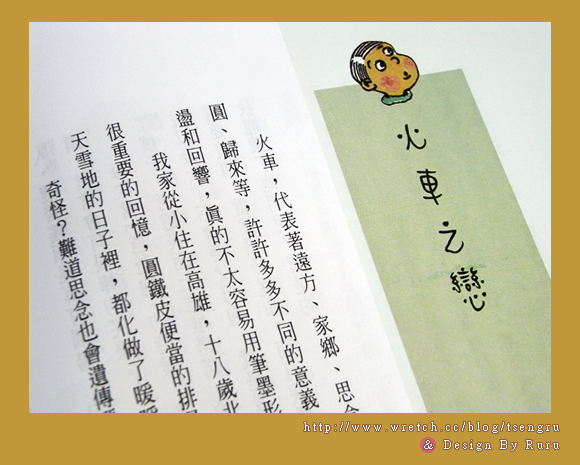 火車之戀
火車，代表著遠方、家鄉、思
圓、歸來等，許許多多不同的意義
盪和回響，眞的不太容易用筆墨形
我家從小住在高雄，十八歲北
很重要的回憶，圓鐵皮便當的排
天雪地的日子裡，都化做了暖
奇怪？難道思念也會遺傳
http://www.wretch.cc/blog/tsengru
& Design By Ruru